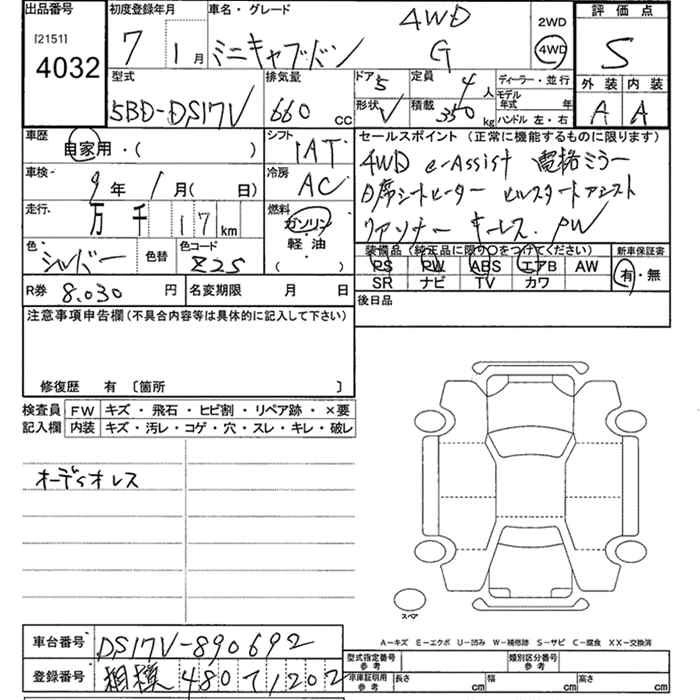 出品番号 初度登録年月 車名・グレード 4WD 2WD 評価点
[2151] 4032 7 1月 ミニキャブバン G 4WD S
型式 排気量 ドア 5 定員 4人 ディーラー・並行 外装 内装
5BD-DS17V 660cc 形状 V 積載 350kg モデル年式 年 ハンドル 左・右 A A
車歴 自家用・( ) シフト IAT セールスポイント (正常に機能するものに限ります)
車検 9年 1月( 日) 冷房 AC 4WD e-Assist 電格ミラー
D席シートヒーター ヒルスタートアシスト
走行 万 千 17km 燃料 ガソリン 軽油 ( ) リアソナー キーレス. PW
色 シルバー 色替 色コード Z2S 装備品 (純正品に限り○をつけてください) 新車保証書
PS PW ABS エアB AW 有・無
SR ナビ TV カワ
R券 8,030円 名変期限 月 日 後日品
注意事項申告欄(不具合内容等は具体的に記入して下さい)
修復歴 有 〔箇所 〕
検査員 FW キズ・飛石・ヒビ割・リペア跡・×要
記入欄 内装 キズ・汚レ・コゲ・穴・スレ・キレ・破レ
オーディオレス
スペア
A-キズ E-エクボ U-凹み W-補修跡 S-サビ C-腐食 XX-交換済
車台番号 DS17V-890692 型式指定番号 参考 類別区分番号 参考
登録番号 相模 480 て1202 車庫証明用 参考 長さ cm 幅 cm 高さ cm